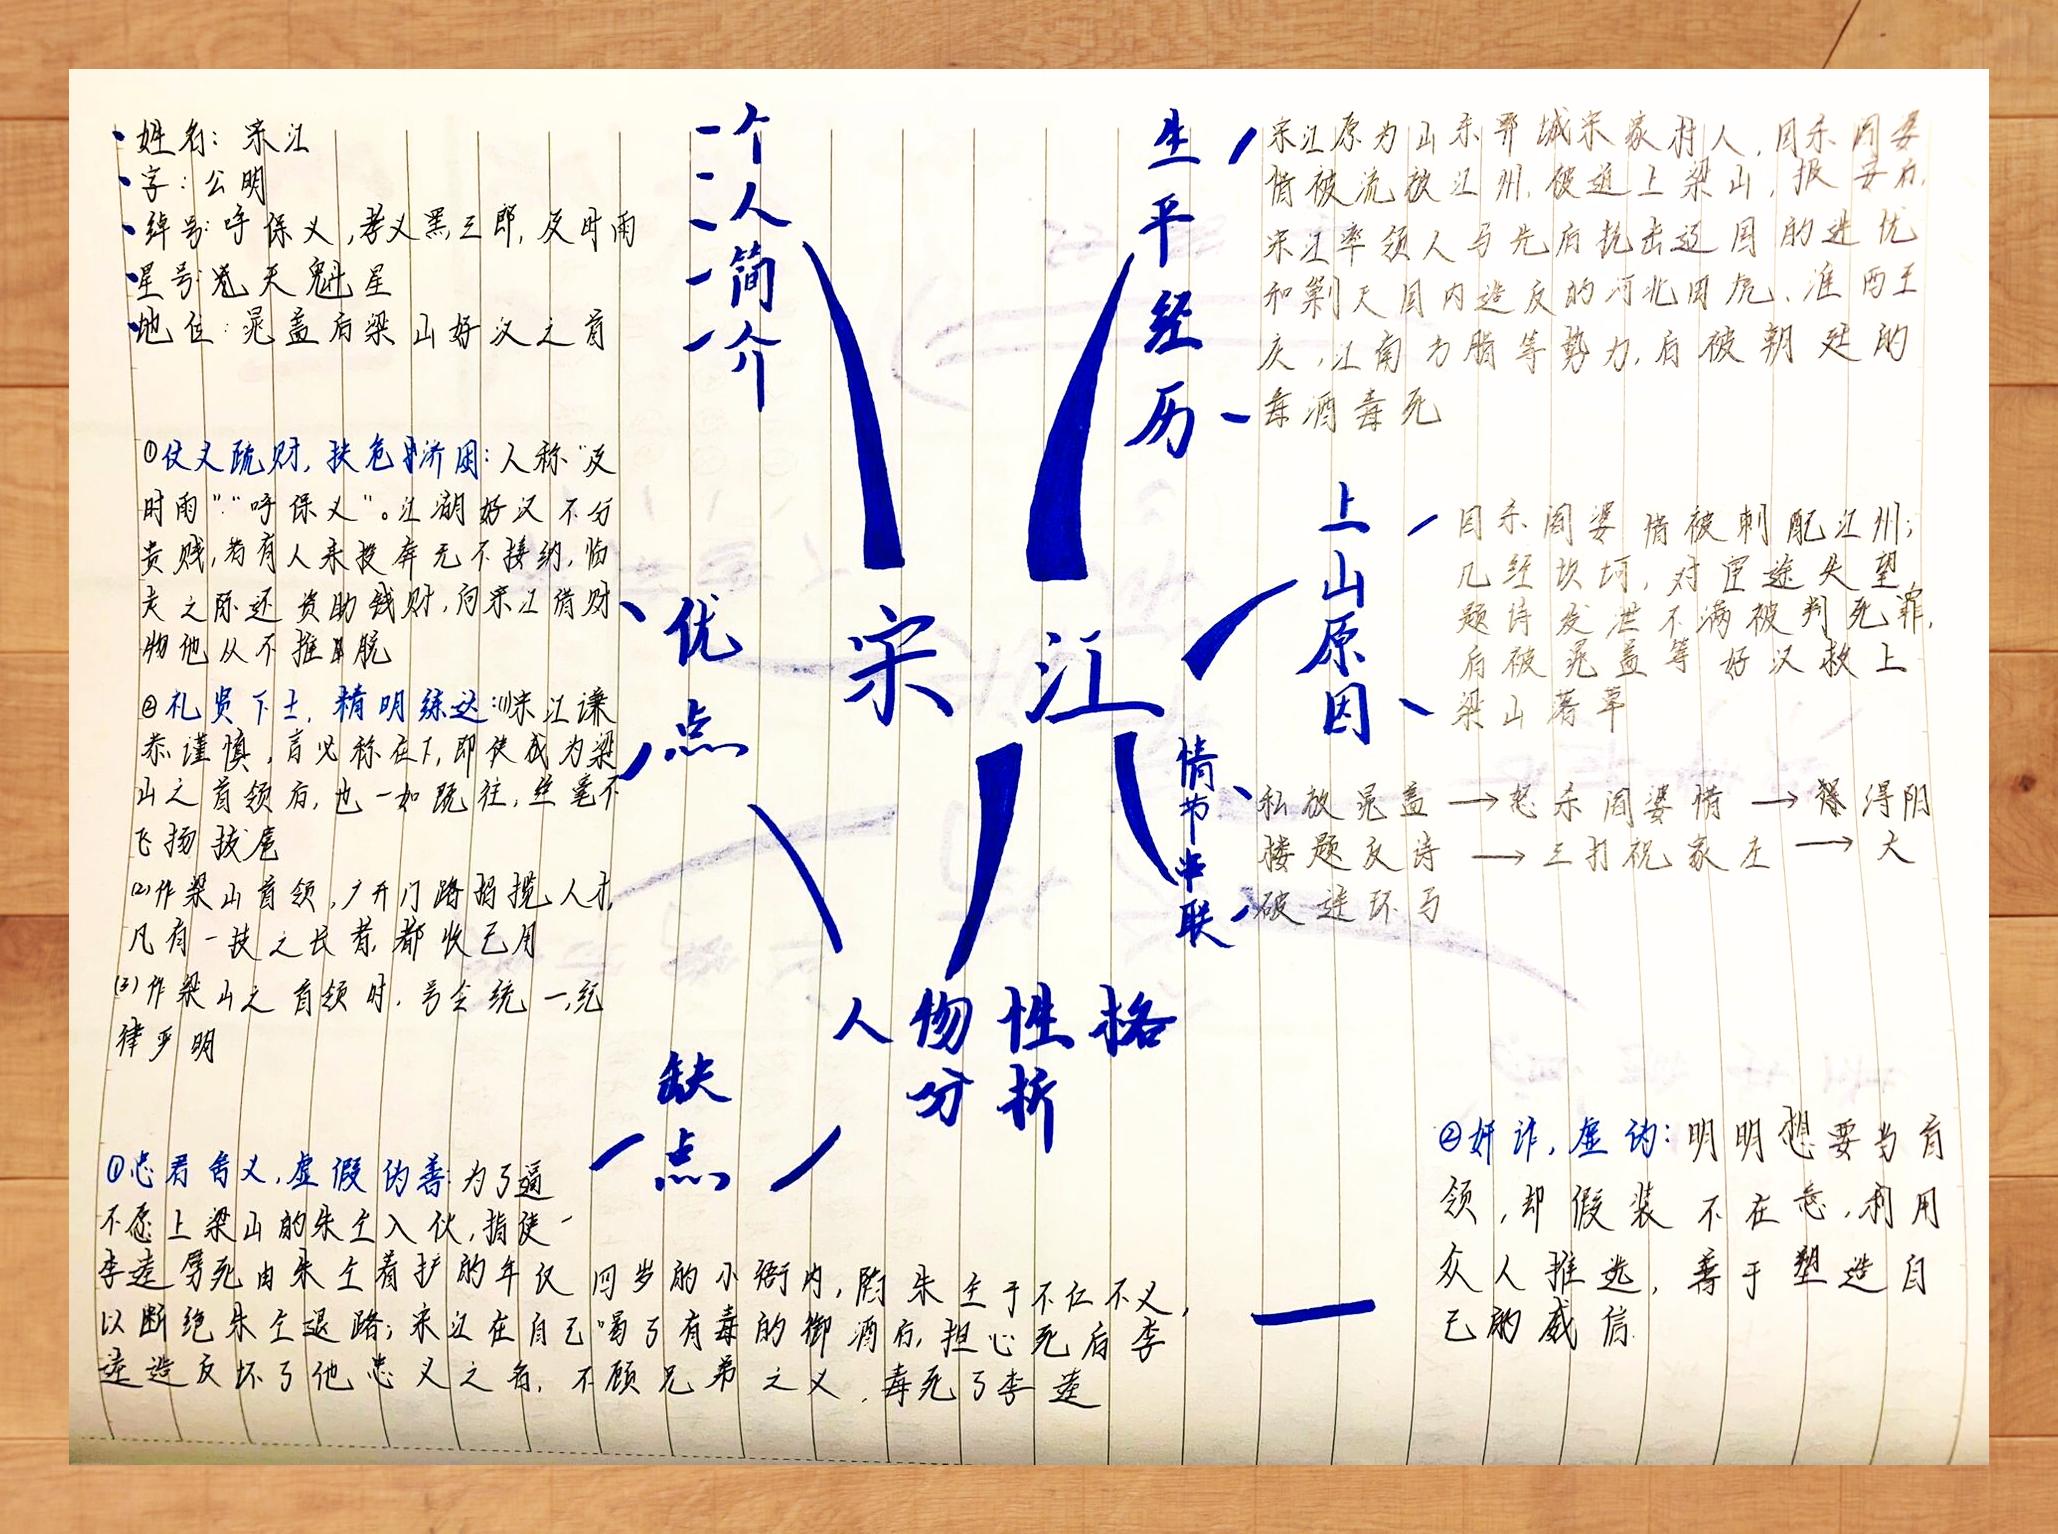 个人简介
姓名：宋江
字：公明
绰号：呼保义，孝义黑三郎，及时雨
星号：天魁星
地位：晁盖后梁山好汉之首
生平经历
宋江原为山东郓城宋家村人，因杀阎婆
惜被流放江州，被逼上梁山，报安后，
宋江率领人马先后抗击辽国的进忧
和剿灭国内造反的河北田虎、淮西王
庆，江南方腊等势力，后被朝廷的
毒酒毒死
上山原因
因杀阎婆惜被刺配江州；
几经坎坷，对官途失望
题诗发泄不满被判死罪，
后被晁盖等好汉救上
梁山落草
宋江
情节串联
私放晁盖→怒杀阎婆惜→浔阳
楼题反诗→三打祝家庄→大
破连环马
人物性格
分析
优点
①仗义疏财，扶危济困：人称“及
时雨”“呼保义”。江湖好汉不分
贵贱，若有人来投奔无不接纳，临
走之际还资助钱财，向宋江借财
物他从不推脱
②礼贤下士，精明练达：(1)宋江谦
恭谨慎，言必称在下，即使成为梁
山之首领后，也一如既往，丝毫不
飞扬拔扈
(2)作梁山首领，广开门路招揽人才，
凡有一技之长者，都收己用
(3)作梁山之首领时，号令统一，纪
律严明
缺点
①忠君舍义，虚假伪善：为了逼
不愿上梁山的朱仝入伙，指使
李逵劈死由朱仝看护的年仅四岁的小衙内，陷朱仝于不仁不义，
以断绝朱仝退路；宋江在自己喝了有毒的御酒后，担心死后李
逵造反坏了他忠义之名，不顾兄弟之义，毒死了李逵
②奸诈，虚伪：明明想要当首
领，却假装不在意，利用
众人推选，善于塑造自
己的威信